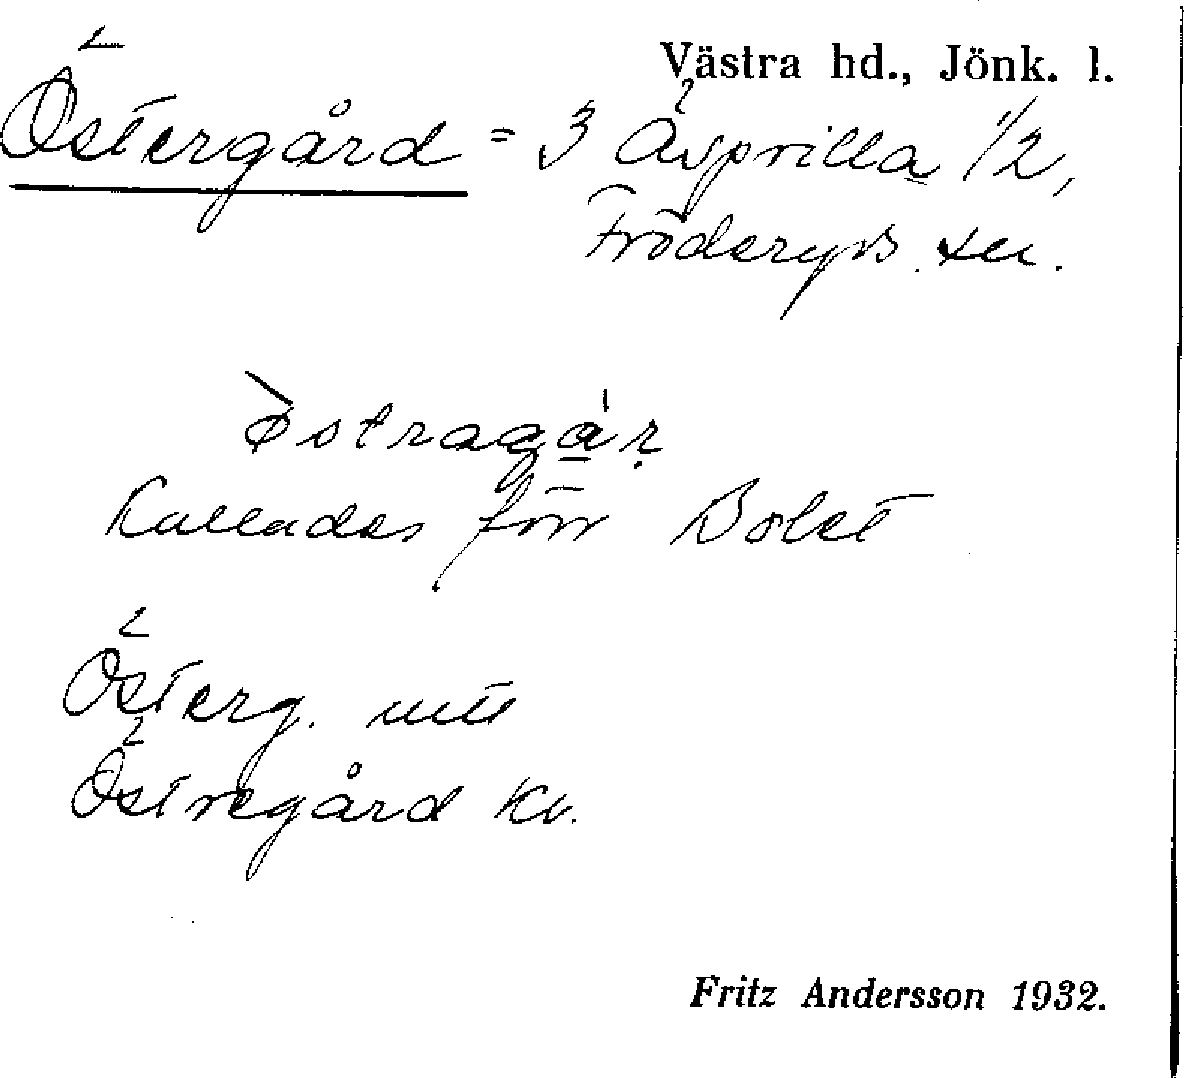 Västra hd., Jönk. l.
Östergård = 3 Äsprilla 1/2,
Fröderyds sn.
østragár
Kallades förr Bolet
Österg. utt
Östregård kv.
Fritz Andersson 1932.